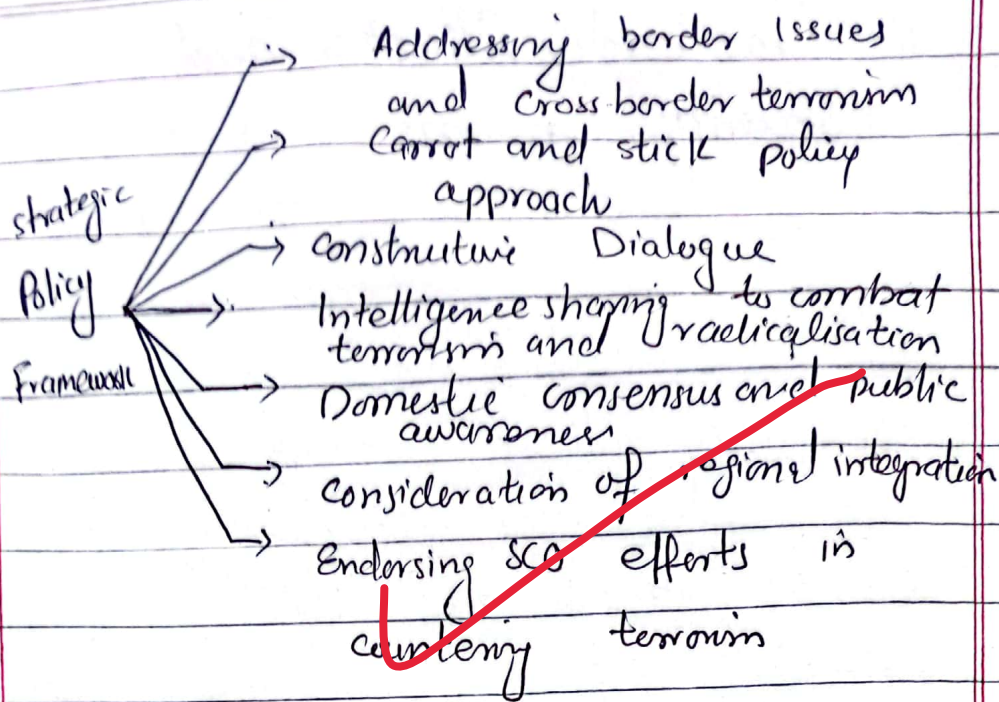 Addressing border Issues
and cross border terrorism
Carrot and stick policy
approach
strategic
Policy
Framework
Construtive Dialogue
Intelligence sharing to combat
terrorism and radicalisation
Domestic consensus and public
awareness
Consideration of regional integration
Endorsing SCO efforts in
countering terrorism